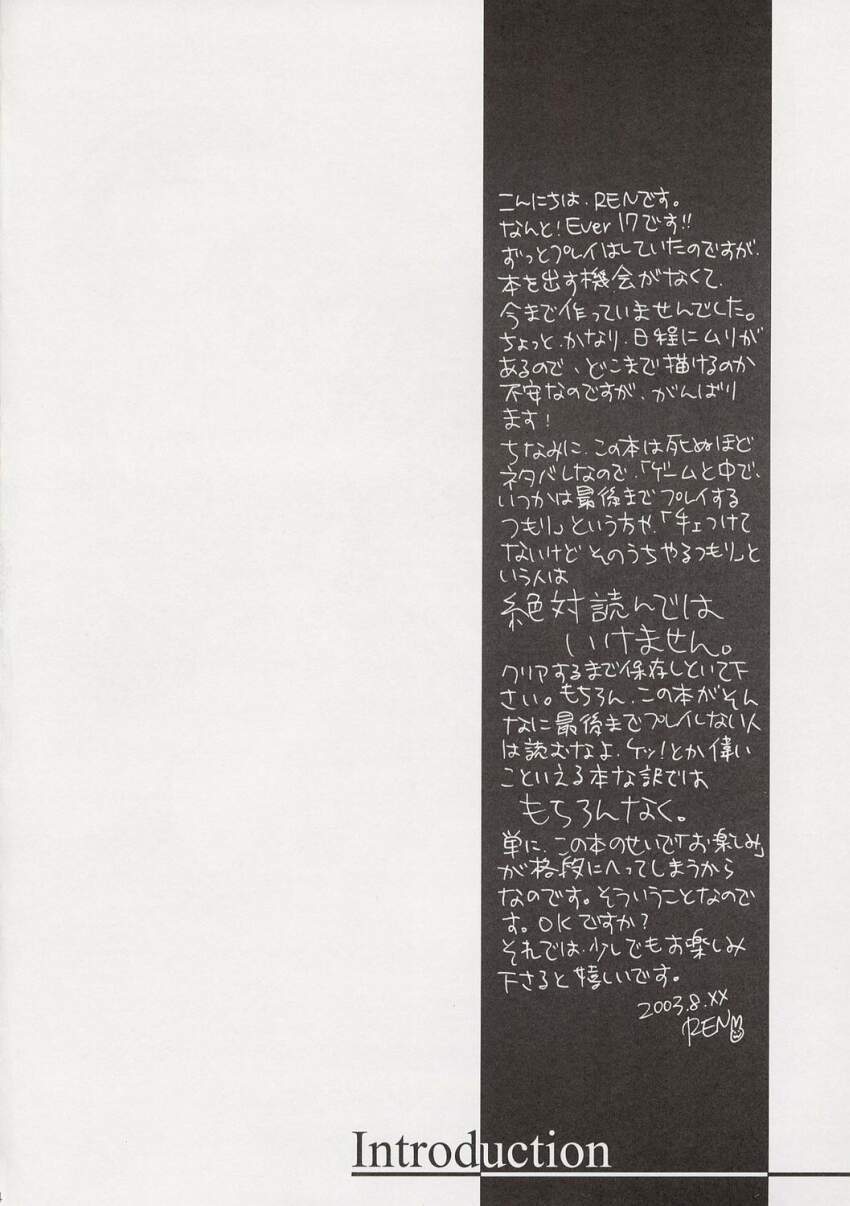 こんにちは.RENです。
なんと!Ever17です!!
ずっとプレイはしていたのですが.
本を出す機会がなくて.
今まで作っていませんでした。
ちょっと.かなり.日程にムリが
あるので、どこまで描けるのか
不安なのですが、がんばり
ます!
ちなみに.この本は死ぬほど
ネタバレなので.「ゲームと中で、
いつかは最後までプレイする
つもり」という方や.「手ェつけて
ないけどそのうちやるつもり」と
いう人は
絶対読んでは
いけません。
クリアするまで保存しといて下
さい。もちろん.この本がそん
なに最後までプレイしない人
は読むなよ.ケッ!とか偉い
こといえる本な訳では
もちろんなく。
単に.この本のせいで「お楽しみ」
が格段にへってしまうから
なのです。そういうことなので
す。OKですか?
それでは.少しでもお楽しみ
下さると嬉しいです。
2003.8.XX
REN
Introduction